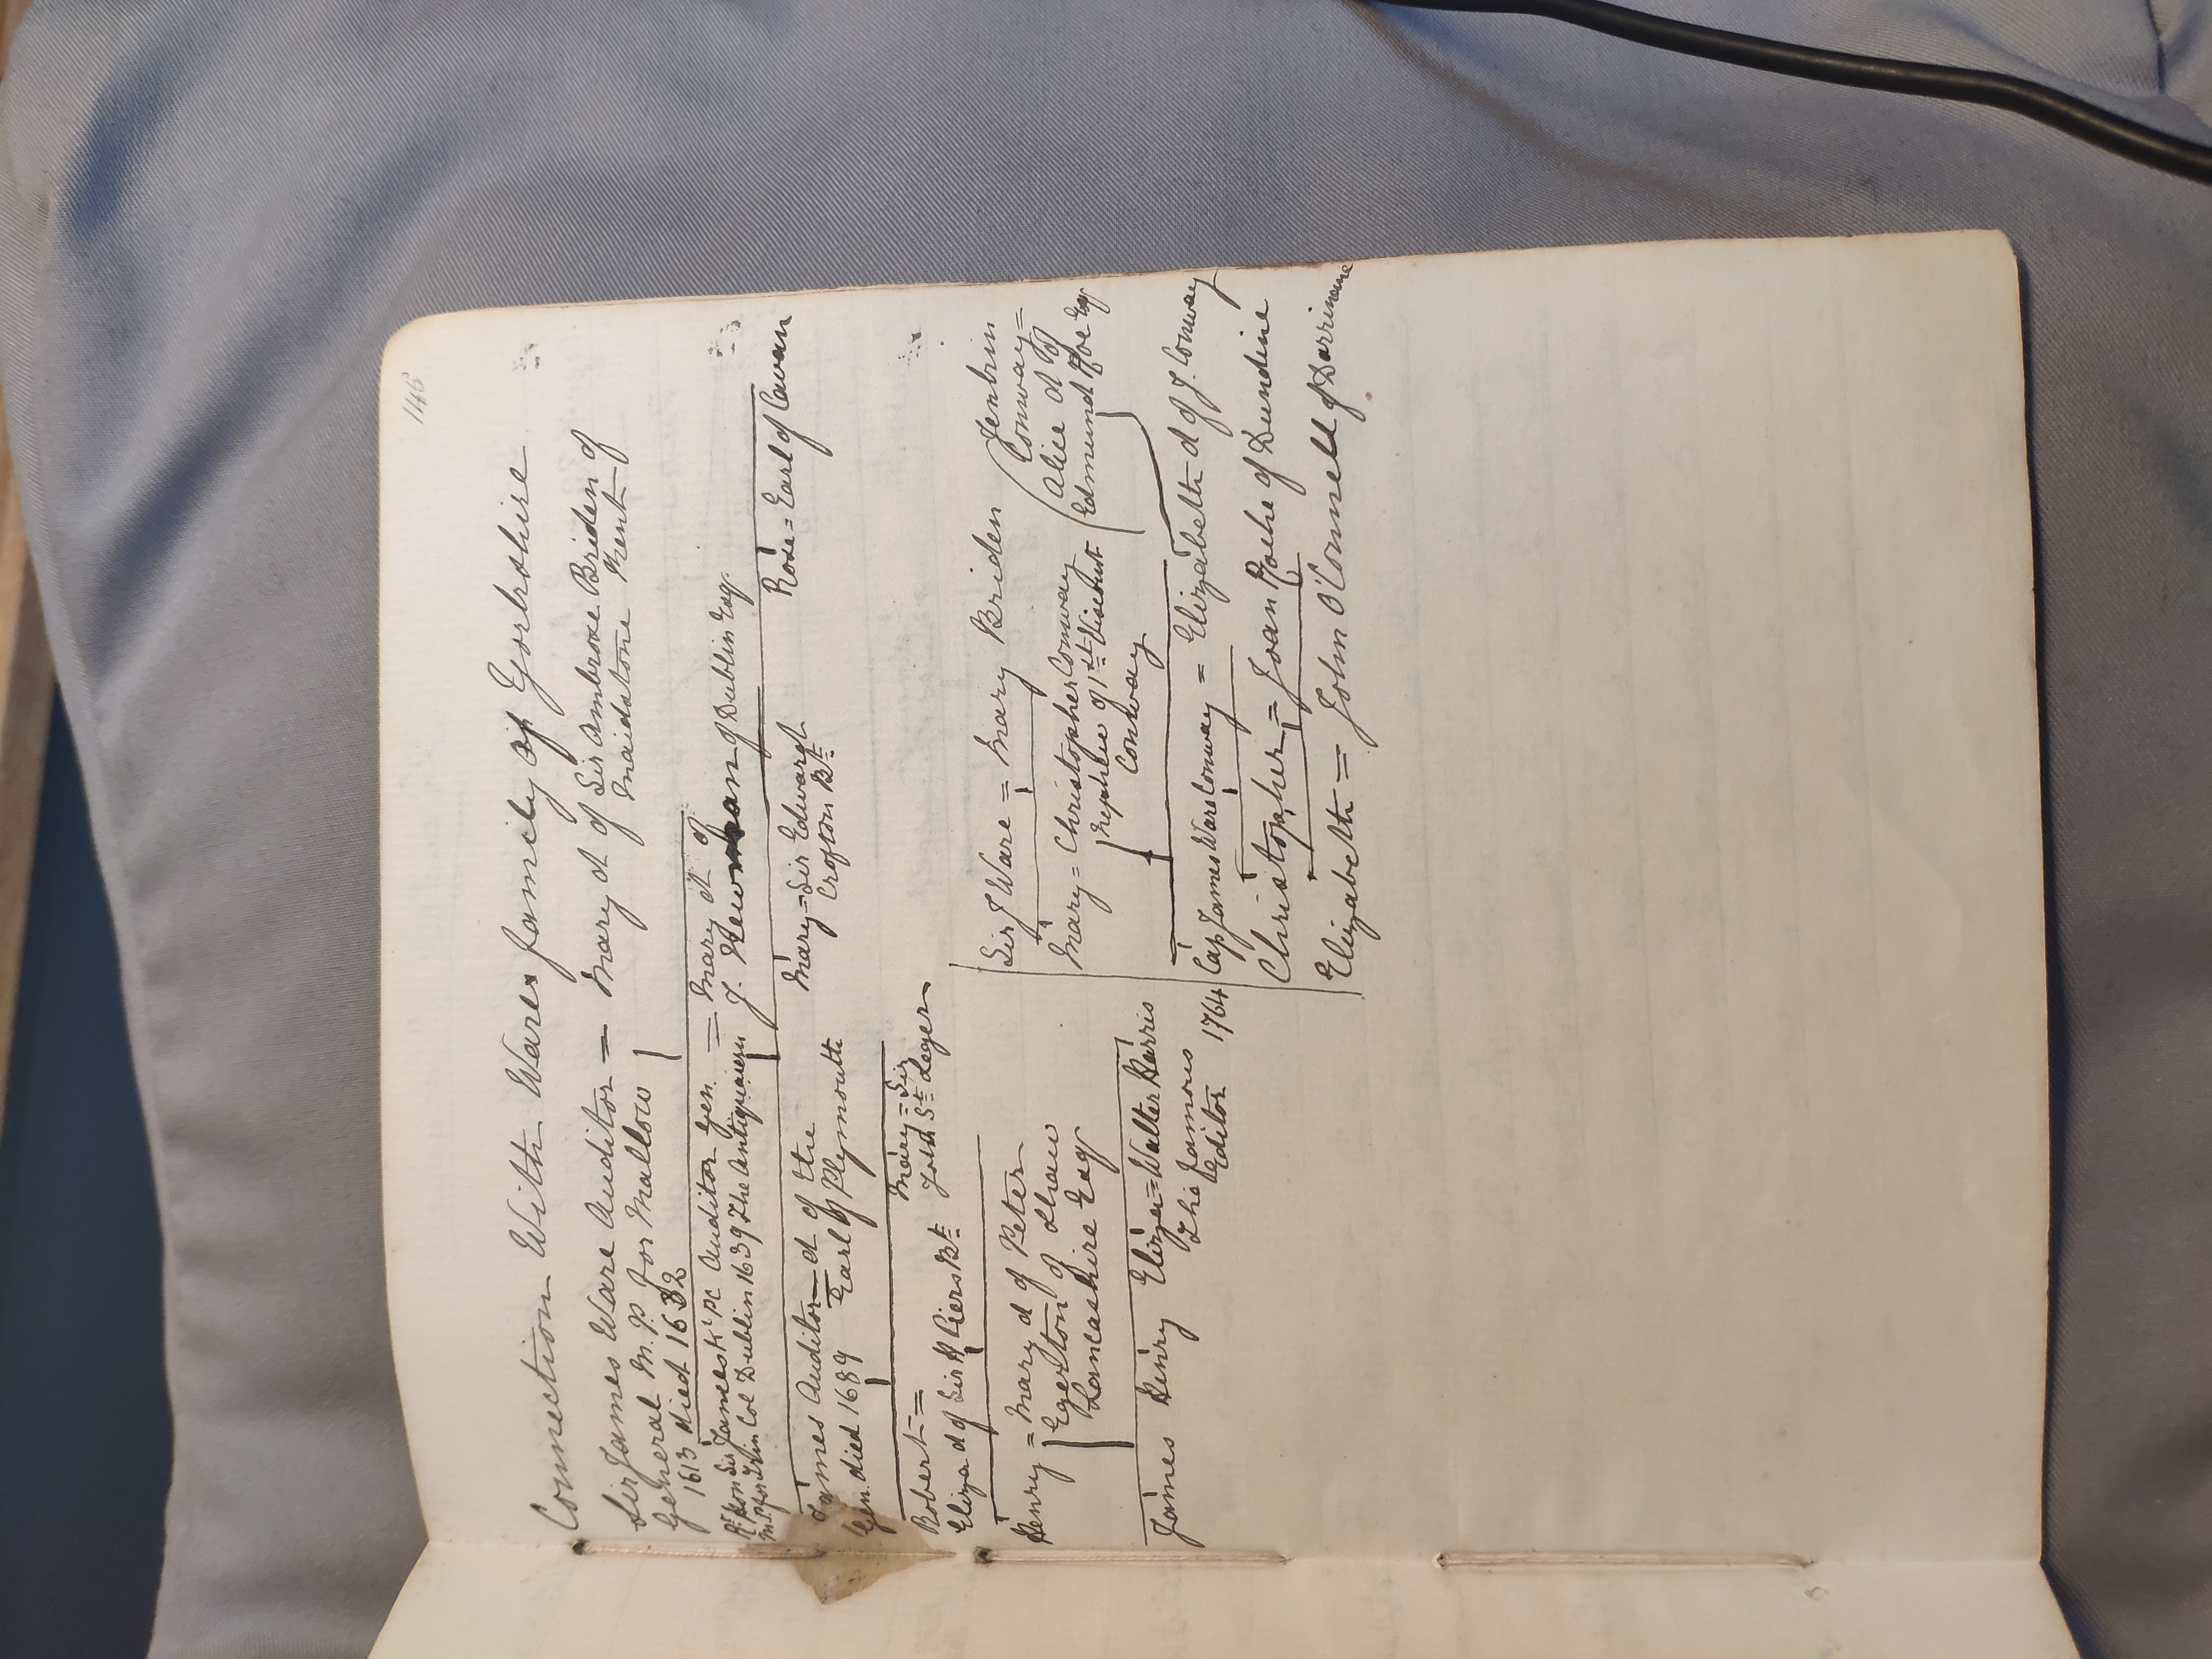 146
Connection With Wares family of Yorkshire
Sir James Ware Auditor = Mary d of Sir Ambrose Briden of
General M.P. for Mallow Maidstone Kent
1613 died 1632
Rt Hon Sir James Kt PC Auditor Gen. = Mary d. of
M.P. for Trin Col Dublin 1639 The Antiquarian J. Newman of Dublin Esq
James Auditor = d of the Mary = Sir Edward Rose = Earl of Cavan
Gen. died 1689 Earl of Plymouth Crofton Bt
Robert = Mary = Sir
Eliza d of Sir H Piers Bt John St Leger
Henry = Mary d of Peter
Egerton of Shaw
Lancashire Esq
James Henry Eliza = Walter Harris
The famous
Editor 1764
Sir J Ware = Mary Briden Jenkin
Conway =
Mary = Christopher Conway Alice d of
nephew of 1st Viscount Edmund Roe Esq
Conway
Cap James Ware Conway = Elizabeth d of J. Conway
Christopher = Joan Roche of Dundine
Elizabeth = John O'Connell of Darrinane